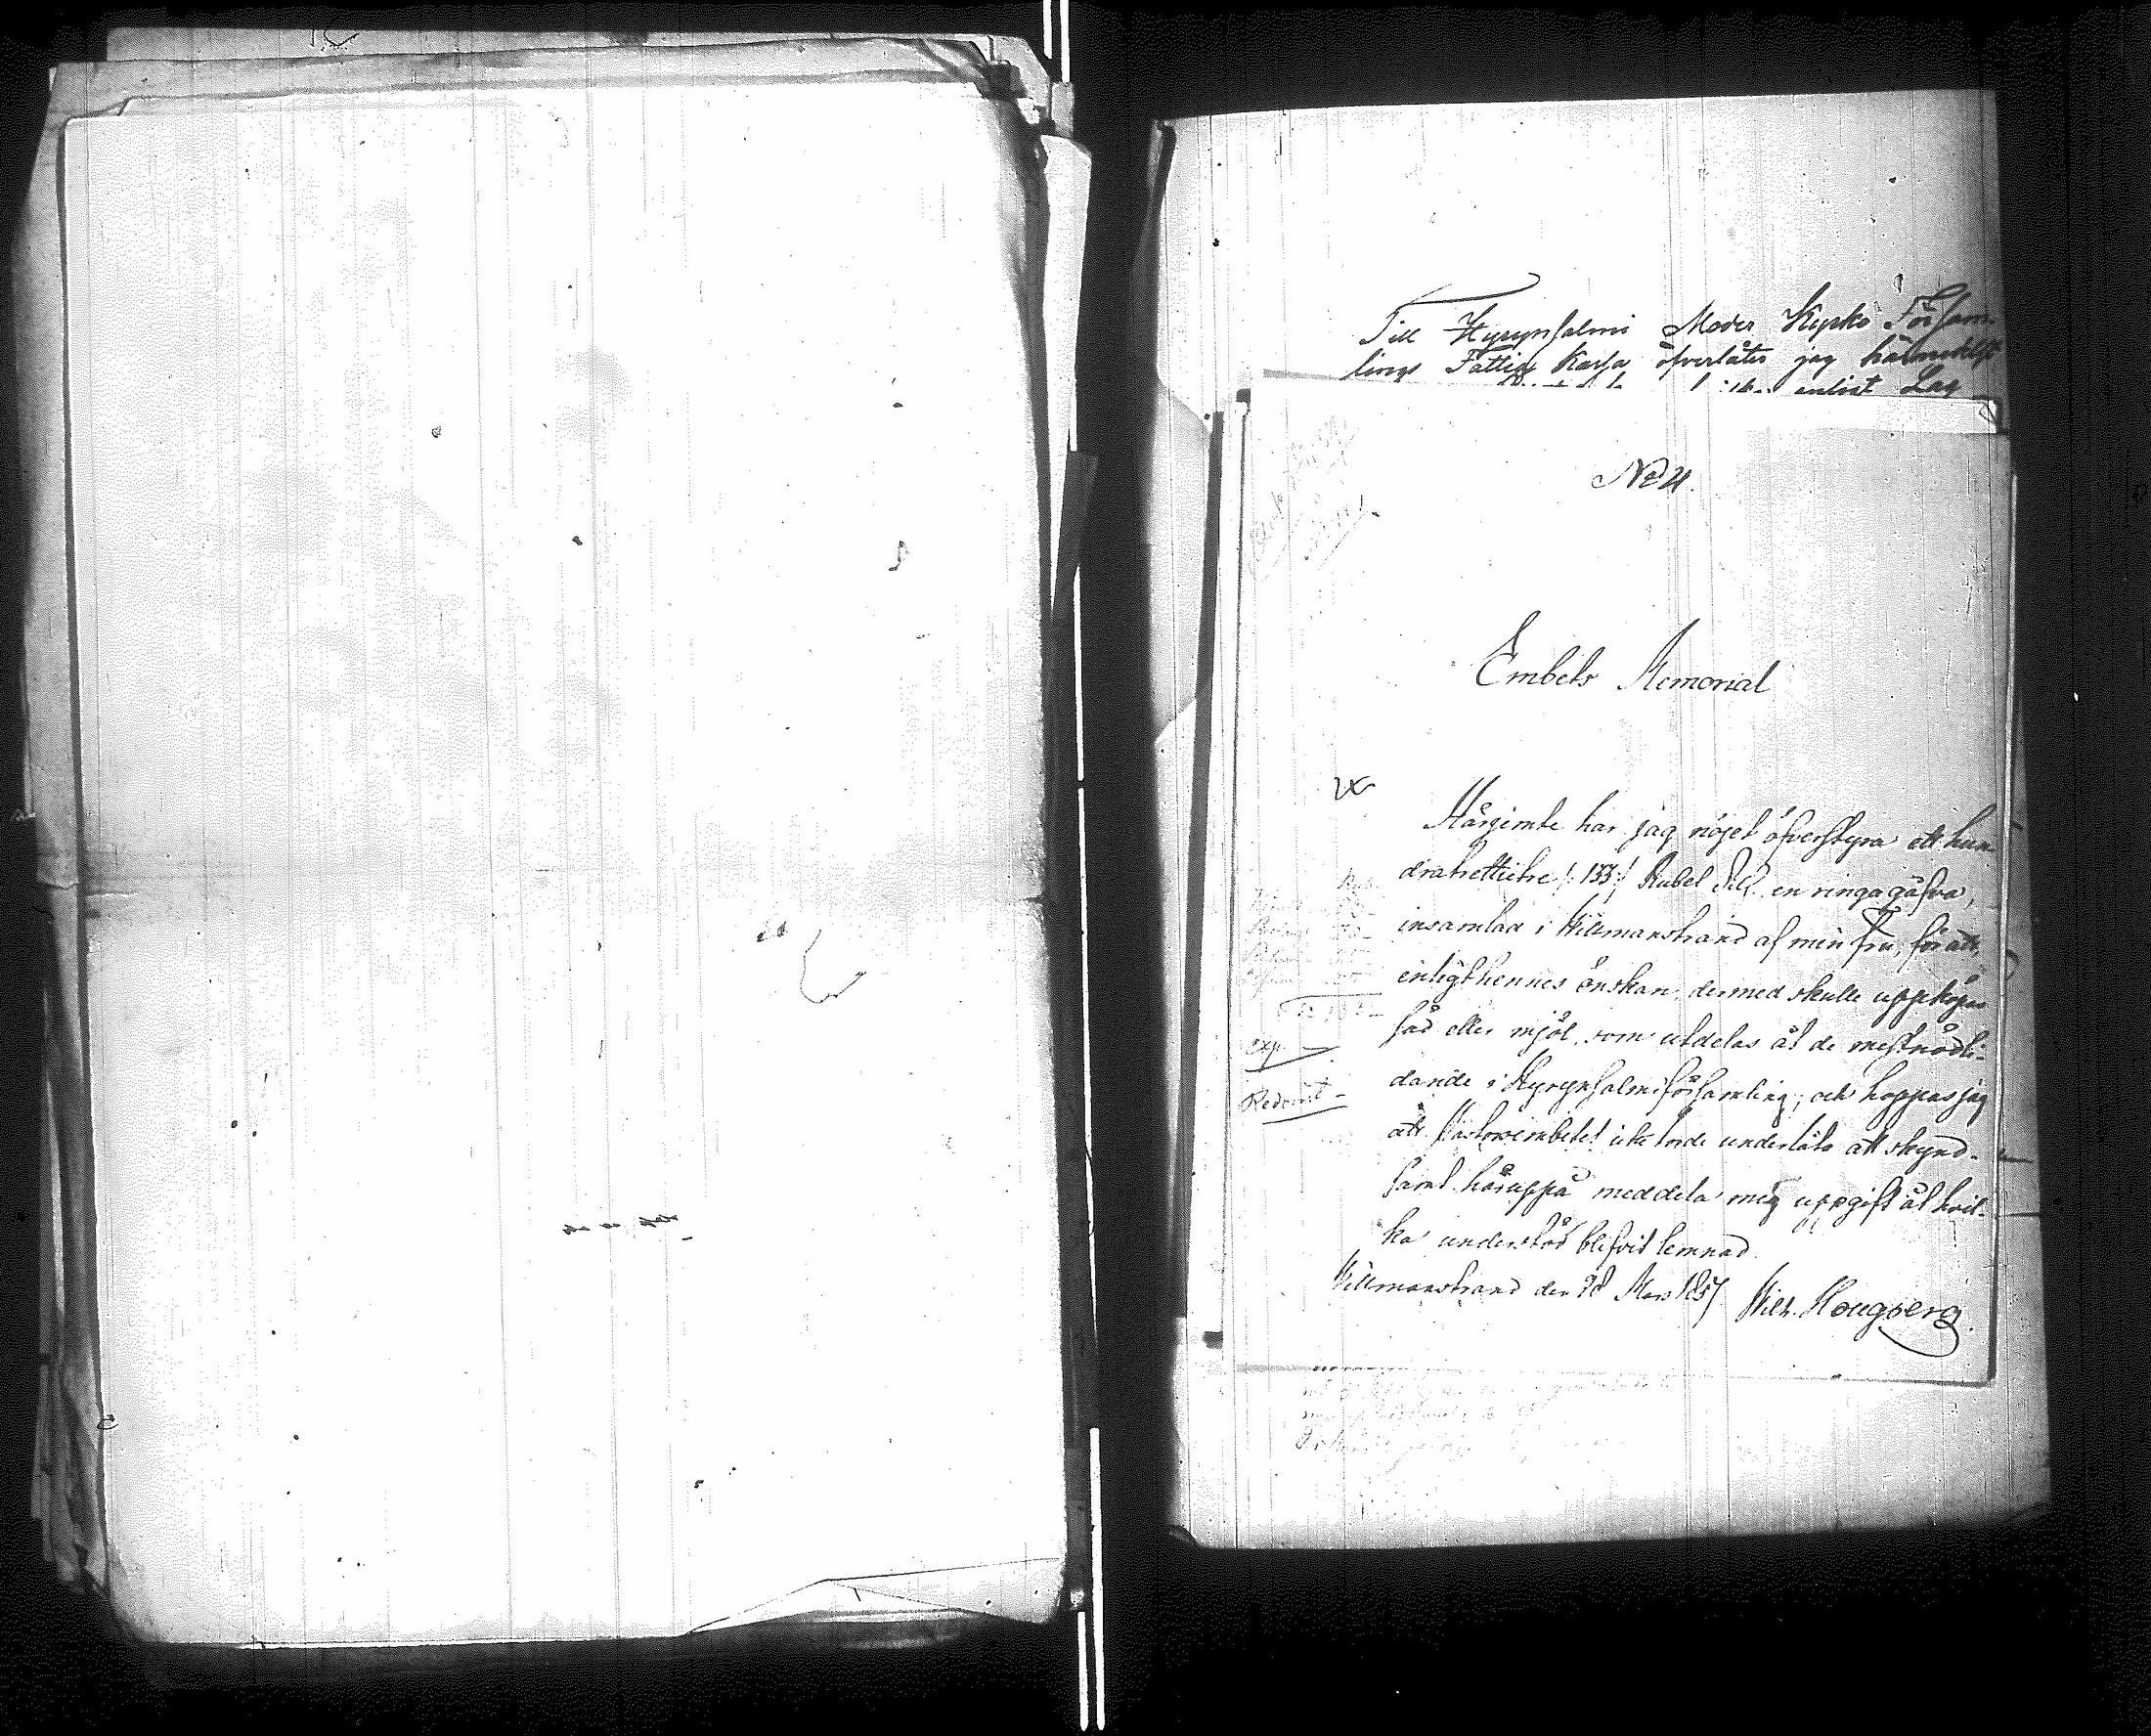 Till Hyrynsalmi Moder Kyrko Försam-
lings Fattig Kassa öfverlåter jag härmedelst
enligt Lag
No 4.
Embets Memorial
Härjemte har jag nöjet öfverstyra ett hun-
dratrettietre /: 133 :/ Rubel Silf. en ringa gåfva,
insamlad i Willmanstrand af min fru, för att,
enligt hennes önskan, dermed skulle uppköpas
säd eller mjöl, som utdelas åt de mest nödli-
dande i Hyrynsalmi församling; och hoppas jag
att Pastorsembetet icke torde underlåta att skynd-
samt häruppå meddela mig uppgift åt hvil-
ka understöd blifvit lemnad.
Willmanstrand den 28 Mars 1857
Wilh. Hougberg.
Exp.
Redovist